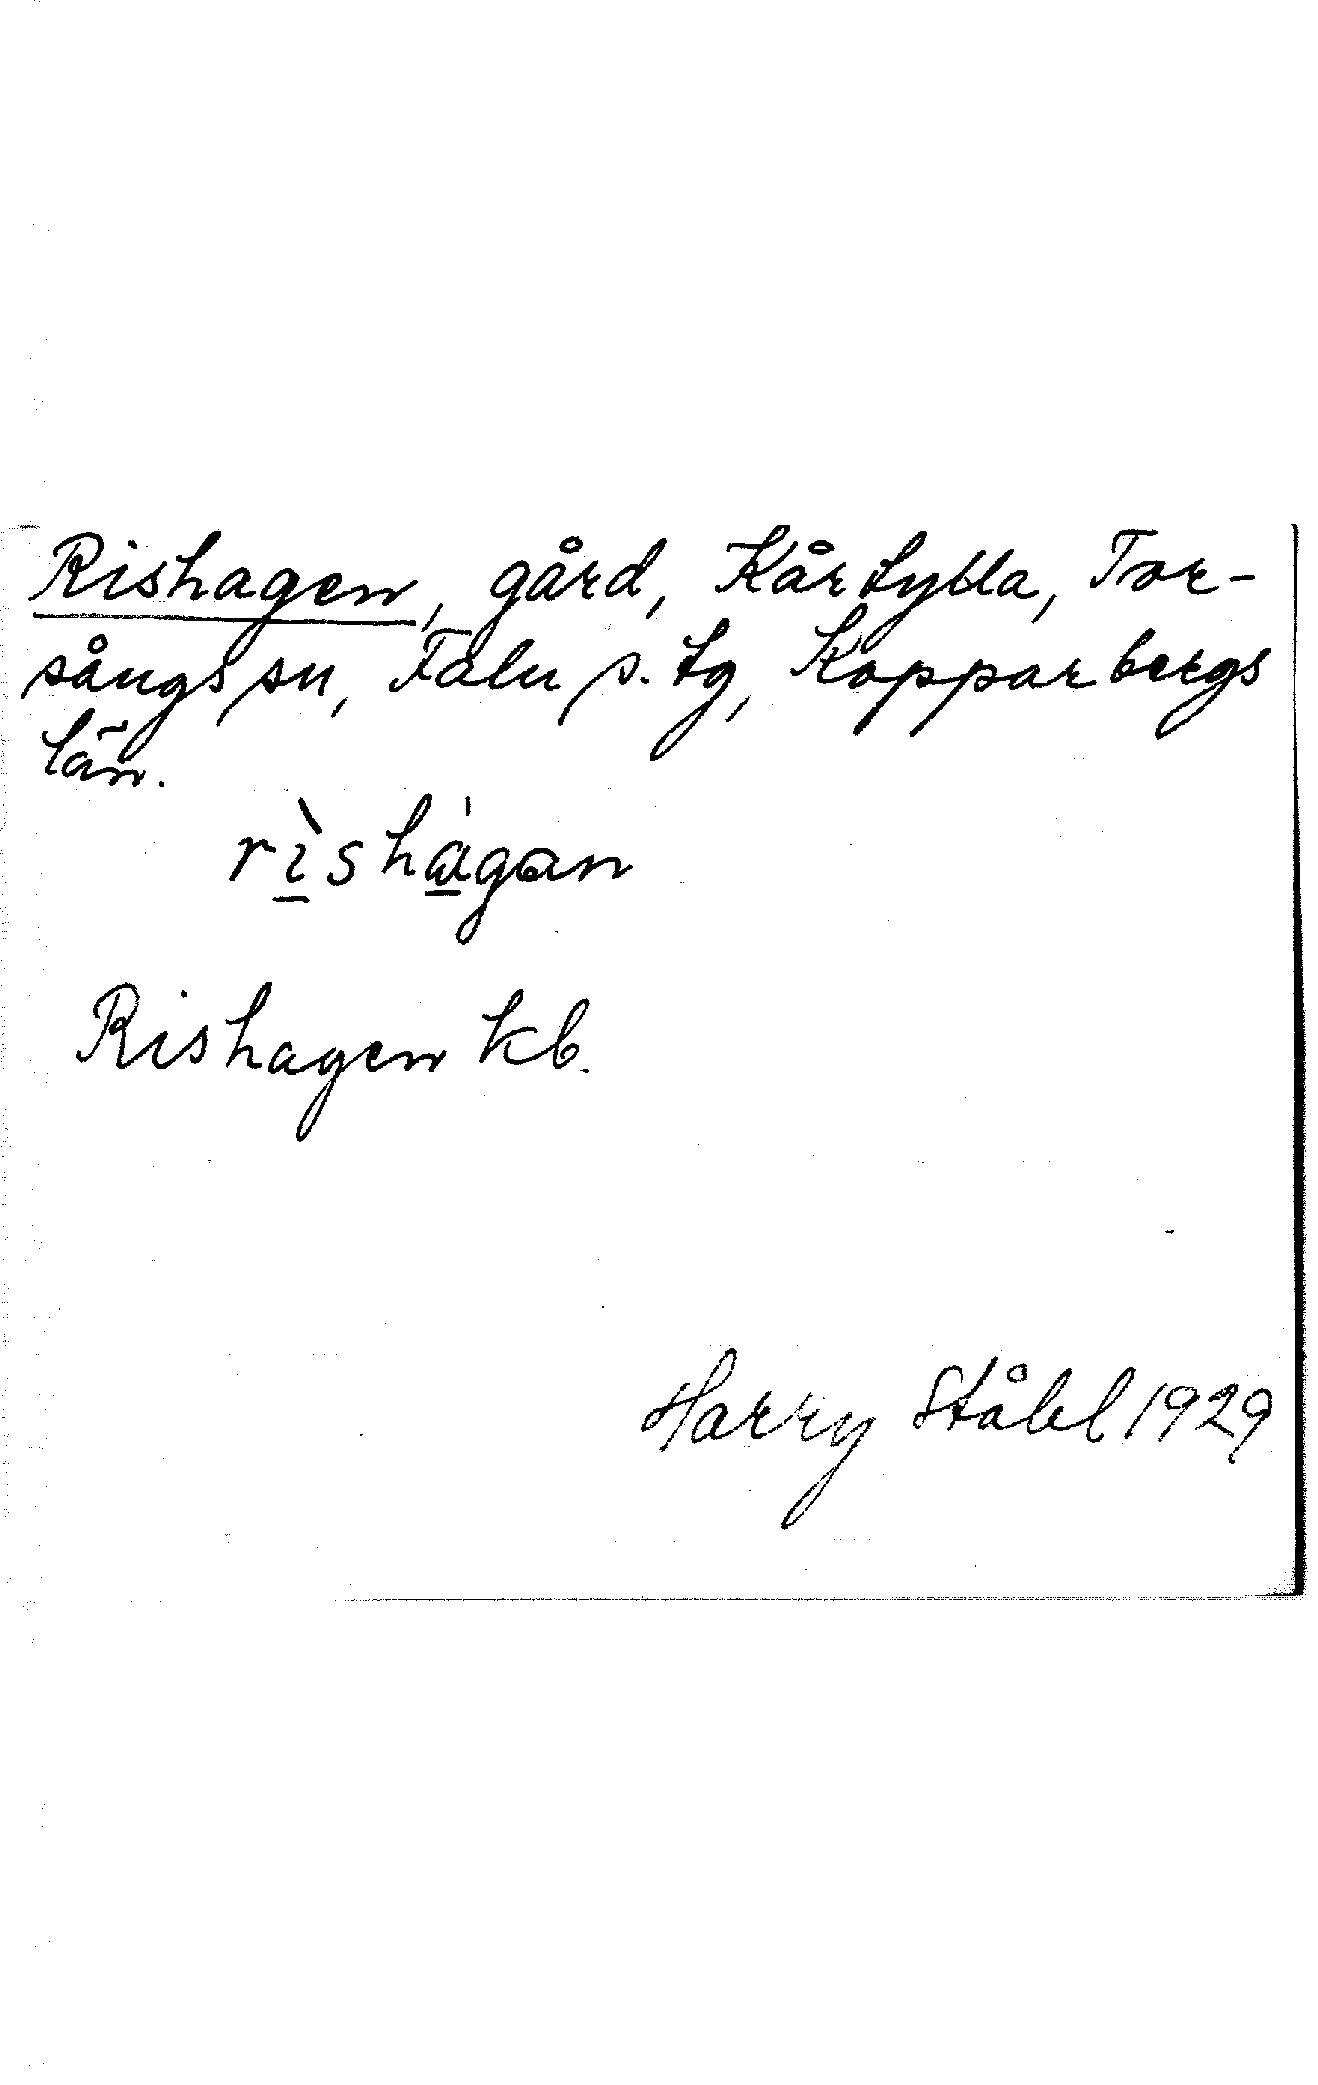 Rishagen, gård, Kårtylla, Tor-
sångs sn, Falu s. tg, Kopparbergs
län.
rı̱̀sha̱̍gan
Rishagen kb.
Harry Ståhl 1929